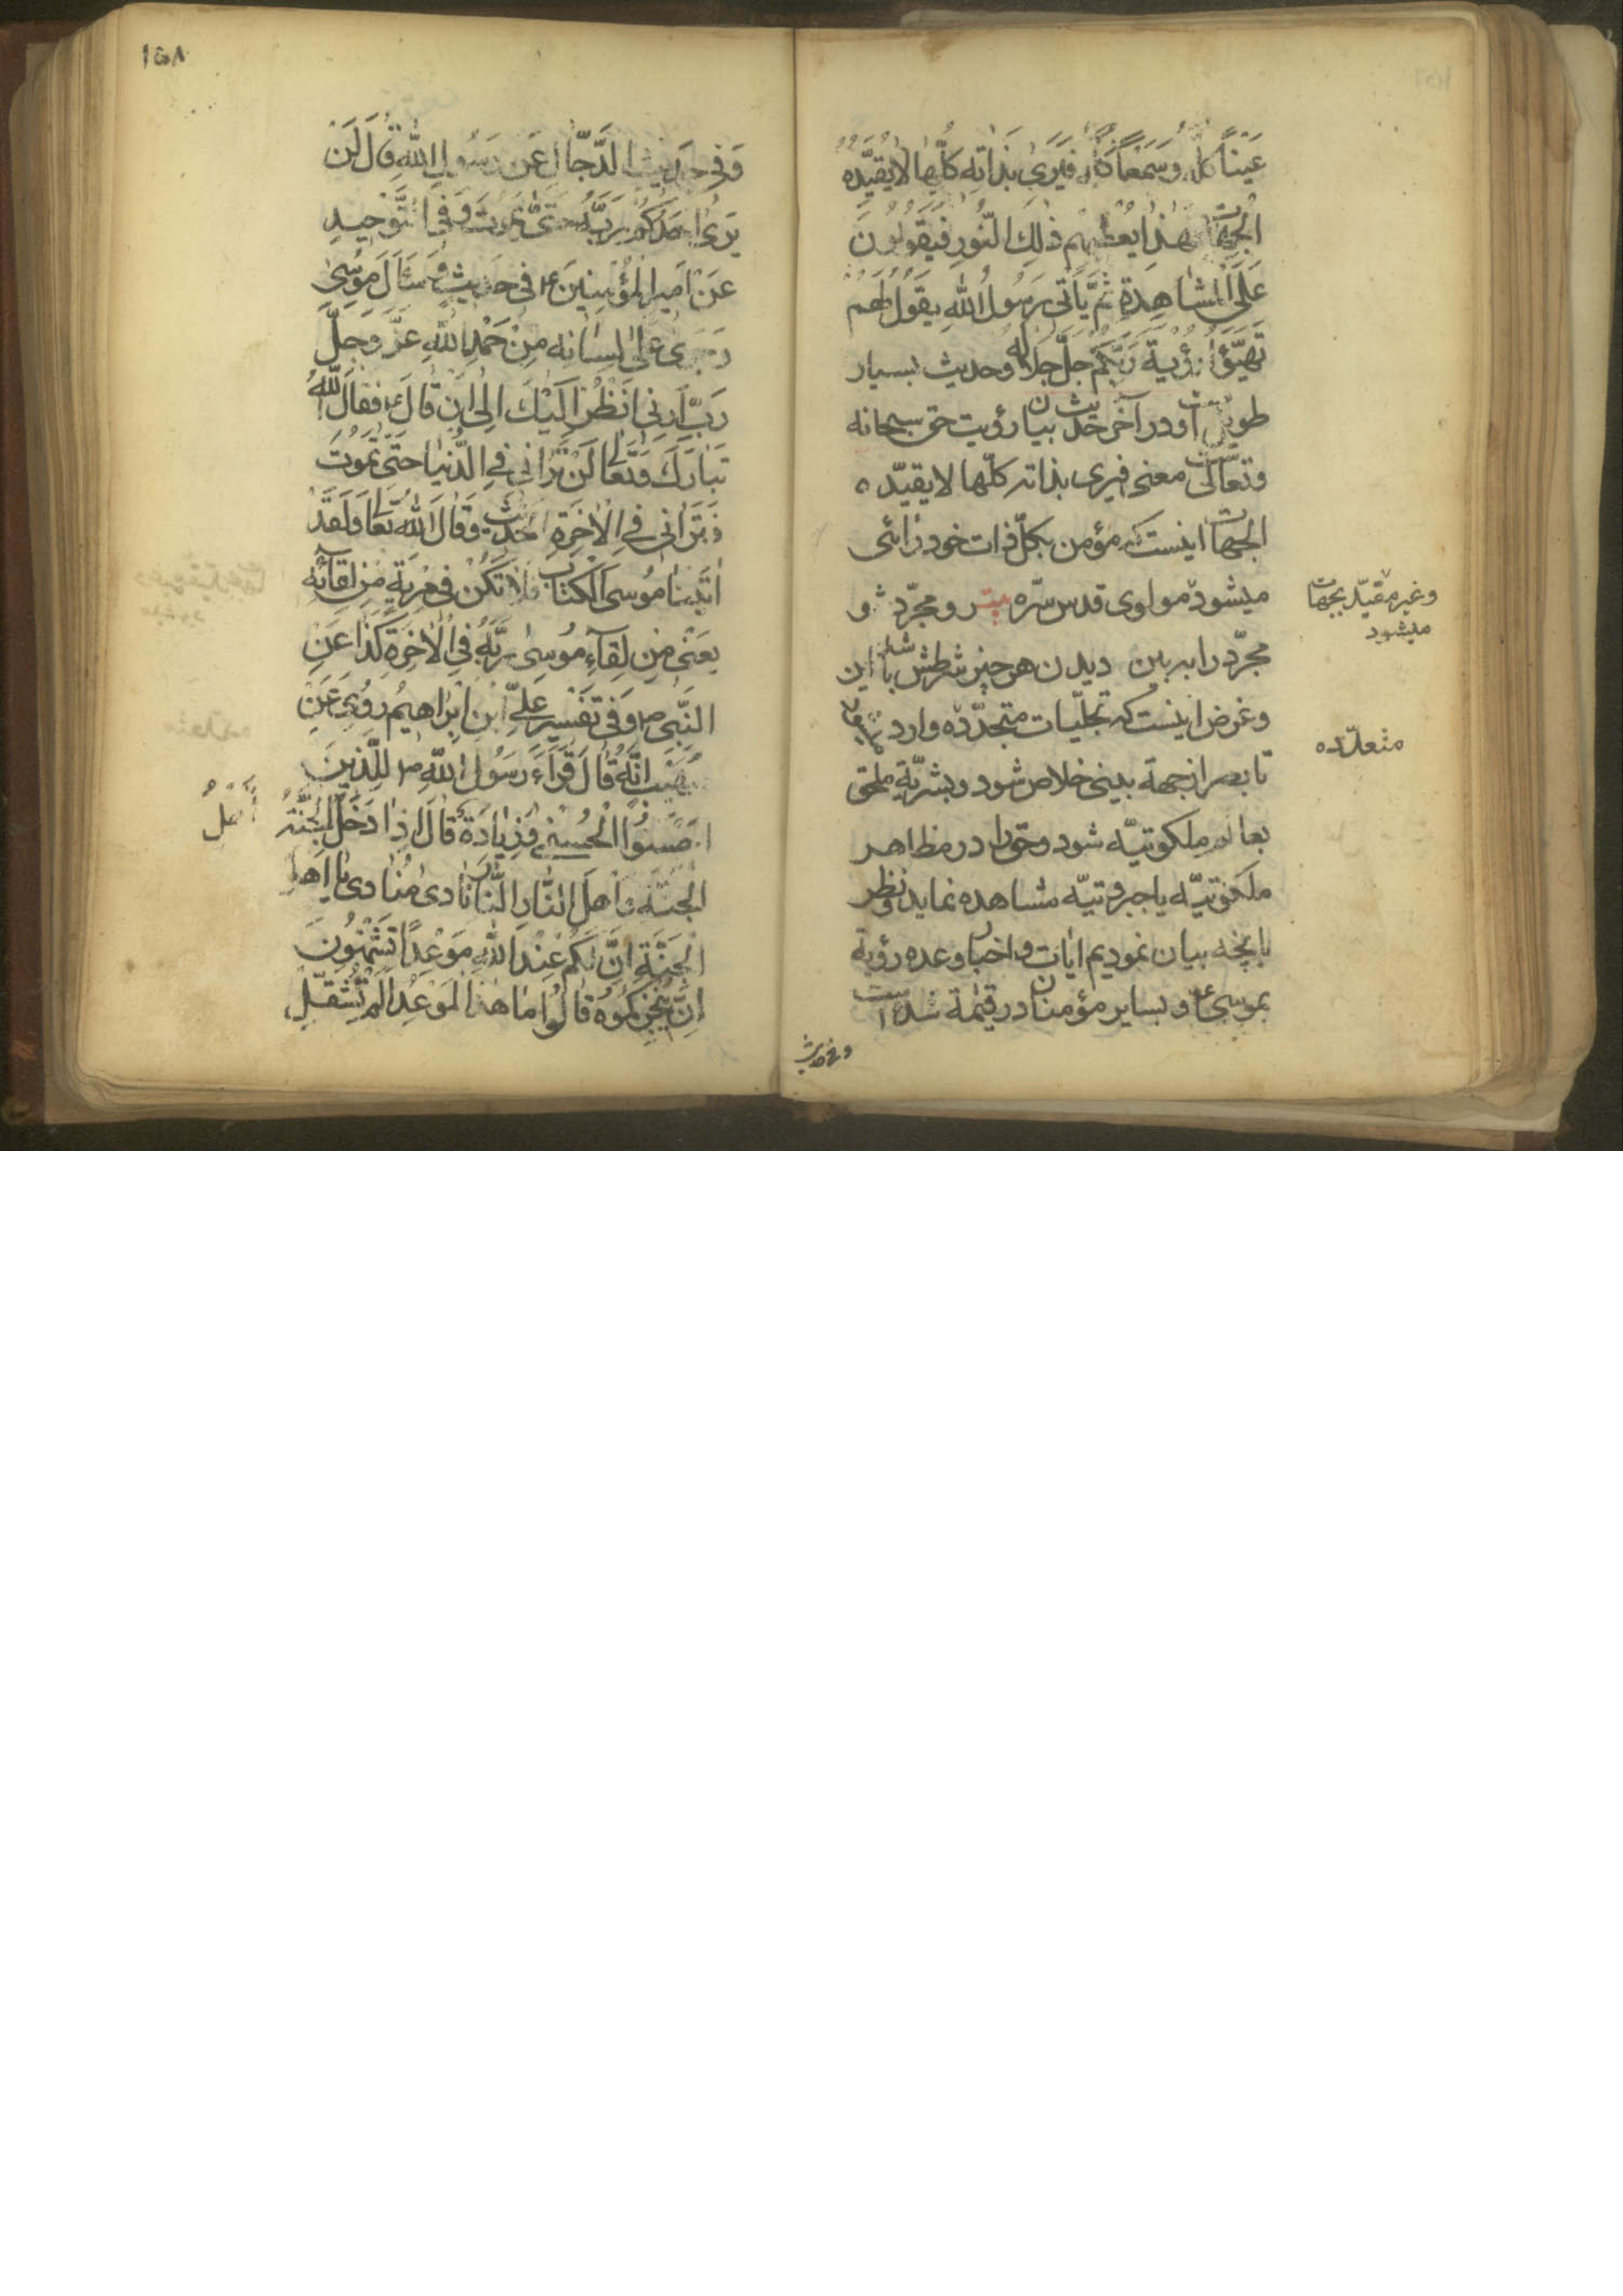 عَيْنًا كُلُّه وَسَمْعًا كُلُّه فَيَرَىٰ بِذَاتِهِ كُلِّهَا لَا يُقَيِّدُهُ
الْجِهَاتُ فَهٰذَا يُعْطِيهِم ذٰلِكَ النُّورِ فَيَقُولُونَ
عَلَى الْمُشَاهَدَةِ ثُمَّ يَأْتِى رَسُولُ اللهِ يَقُولُ لَهُمْ
تَهَيَّؤُا لِرُؤْيَةِ رَبِّكُمْ جَلَّ جَلَالُهُ وحدیث بسیار
طویل است ودر آخر حدیث بیان رؤیت حق سبحانه
وتعالی است معنی فیری بذاته کلّها لا یقیّده
الجهات اینست که مؤمن بکلّ ذات خود رائی
میشود مولوی قدس سرّه بیت رو مجرّد شو
مجرّد را ببین دیدن هر چیز را شرطش باشد این
وغرض اینست که تجلّیات متجدّده وارد
تا بصر از جهة بینی خلاص شود و بشریّة ملحق
بعالم ملکوتیّه شود وحق را در مظاهر
ملکوتیّه یا جبروتیّه مشاهده نماید ونظر
بآنچه بیان نمودیم ایات و اخبار وعده رؤیة
بموسی ع و بسایر مؤمنان در قیمة شده است
وغیر مقیّد بجهات
میشود
متعدّده
وفی حدیث
١٥٨
وَفِى حَدِيثِ الدَّجَّالِ عَنْ رَسُولِ اللهِ قَالَ لَنْ
يَرىٰ اَحَدُكُمْ رَبَّهُ حَتّٰى يَمُوتَ وَفِى التَّوْحِيدِ
عَنْ اَمِيرِ الْمُؤْمِنِينَ ع فِى حَدِيثٍ وَسَئَلَ مُوسٰى
وَجَرىٰ عَلٰى لِسَانِهِ مِنْ حَمْدِ اللهِ عَزَّ وَجَلَّ
رَبِّ اَرِنِى اَنْظُرْ اِلَيْكَ اِلٰى اَنْ قَالَ ع فَقَالَ اللهُ
تَبَارَكَ وَتَعَالٰى لَنْ تَرَانِى فِى الدُّنْيَا حَتّٰى تَمُوتَ
فَتَرَانِى فِى الْاٰخِرَةِ الْحَدِيث وَقَالَ اللهُ تَعَالٰى وَلَقَدْ
اٰتَيْنَا مُوسَى الْكِتَابَ فَلَا تَكُنْ فِى مِرْيَةٍ مِنْ لِقَآئِهِ
يَعْنِى مِنْ لِقَآءِ مُوسٰى رَبَّهُ فِى الْاٰخِرَةِ كَذَا عَنِ
النَّبِىِّ ص وَفِى تَفْسِيرِ عَلِىِّ ابْنِ اِبْرَاهِيمَ رُوِىَ عَنْ
صُهَيْب اَنَّهُ قَالَ قَرَاَءَ رَسُولُ اللهِ ص لِلَّذِينَ
اَحْسَنُوا الْحُسْنٰى وَزِيَادَةٌ قَالَ اِذَا دَخَلَ الْجَنَّةَ
اَهْلُ
الْجَنَّةِ وَاَهْلُ النَّارِ النَّارَ نَادىٰ مُنَادِى يَا اَهْلَ
الْجَنَّةِ اِنَّ لَكُمْ عِنْدَ اللهِ مَوْعِدًا تَشْتَهُونَ
اَنْ يُنْجِزَكُمُوهُ قَالُوا مَا هٰذَا الْمَوْعِدُ اَلَمْ تُثَقِّلْ